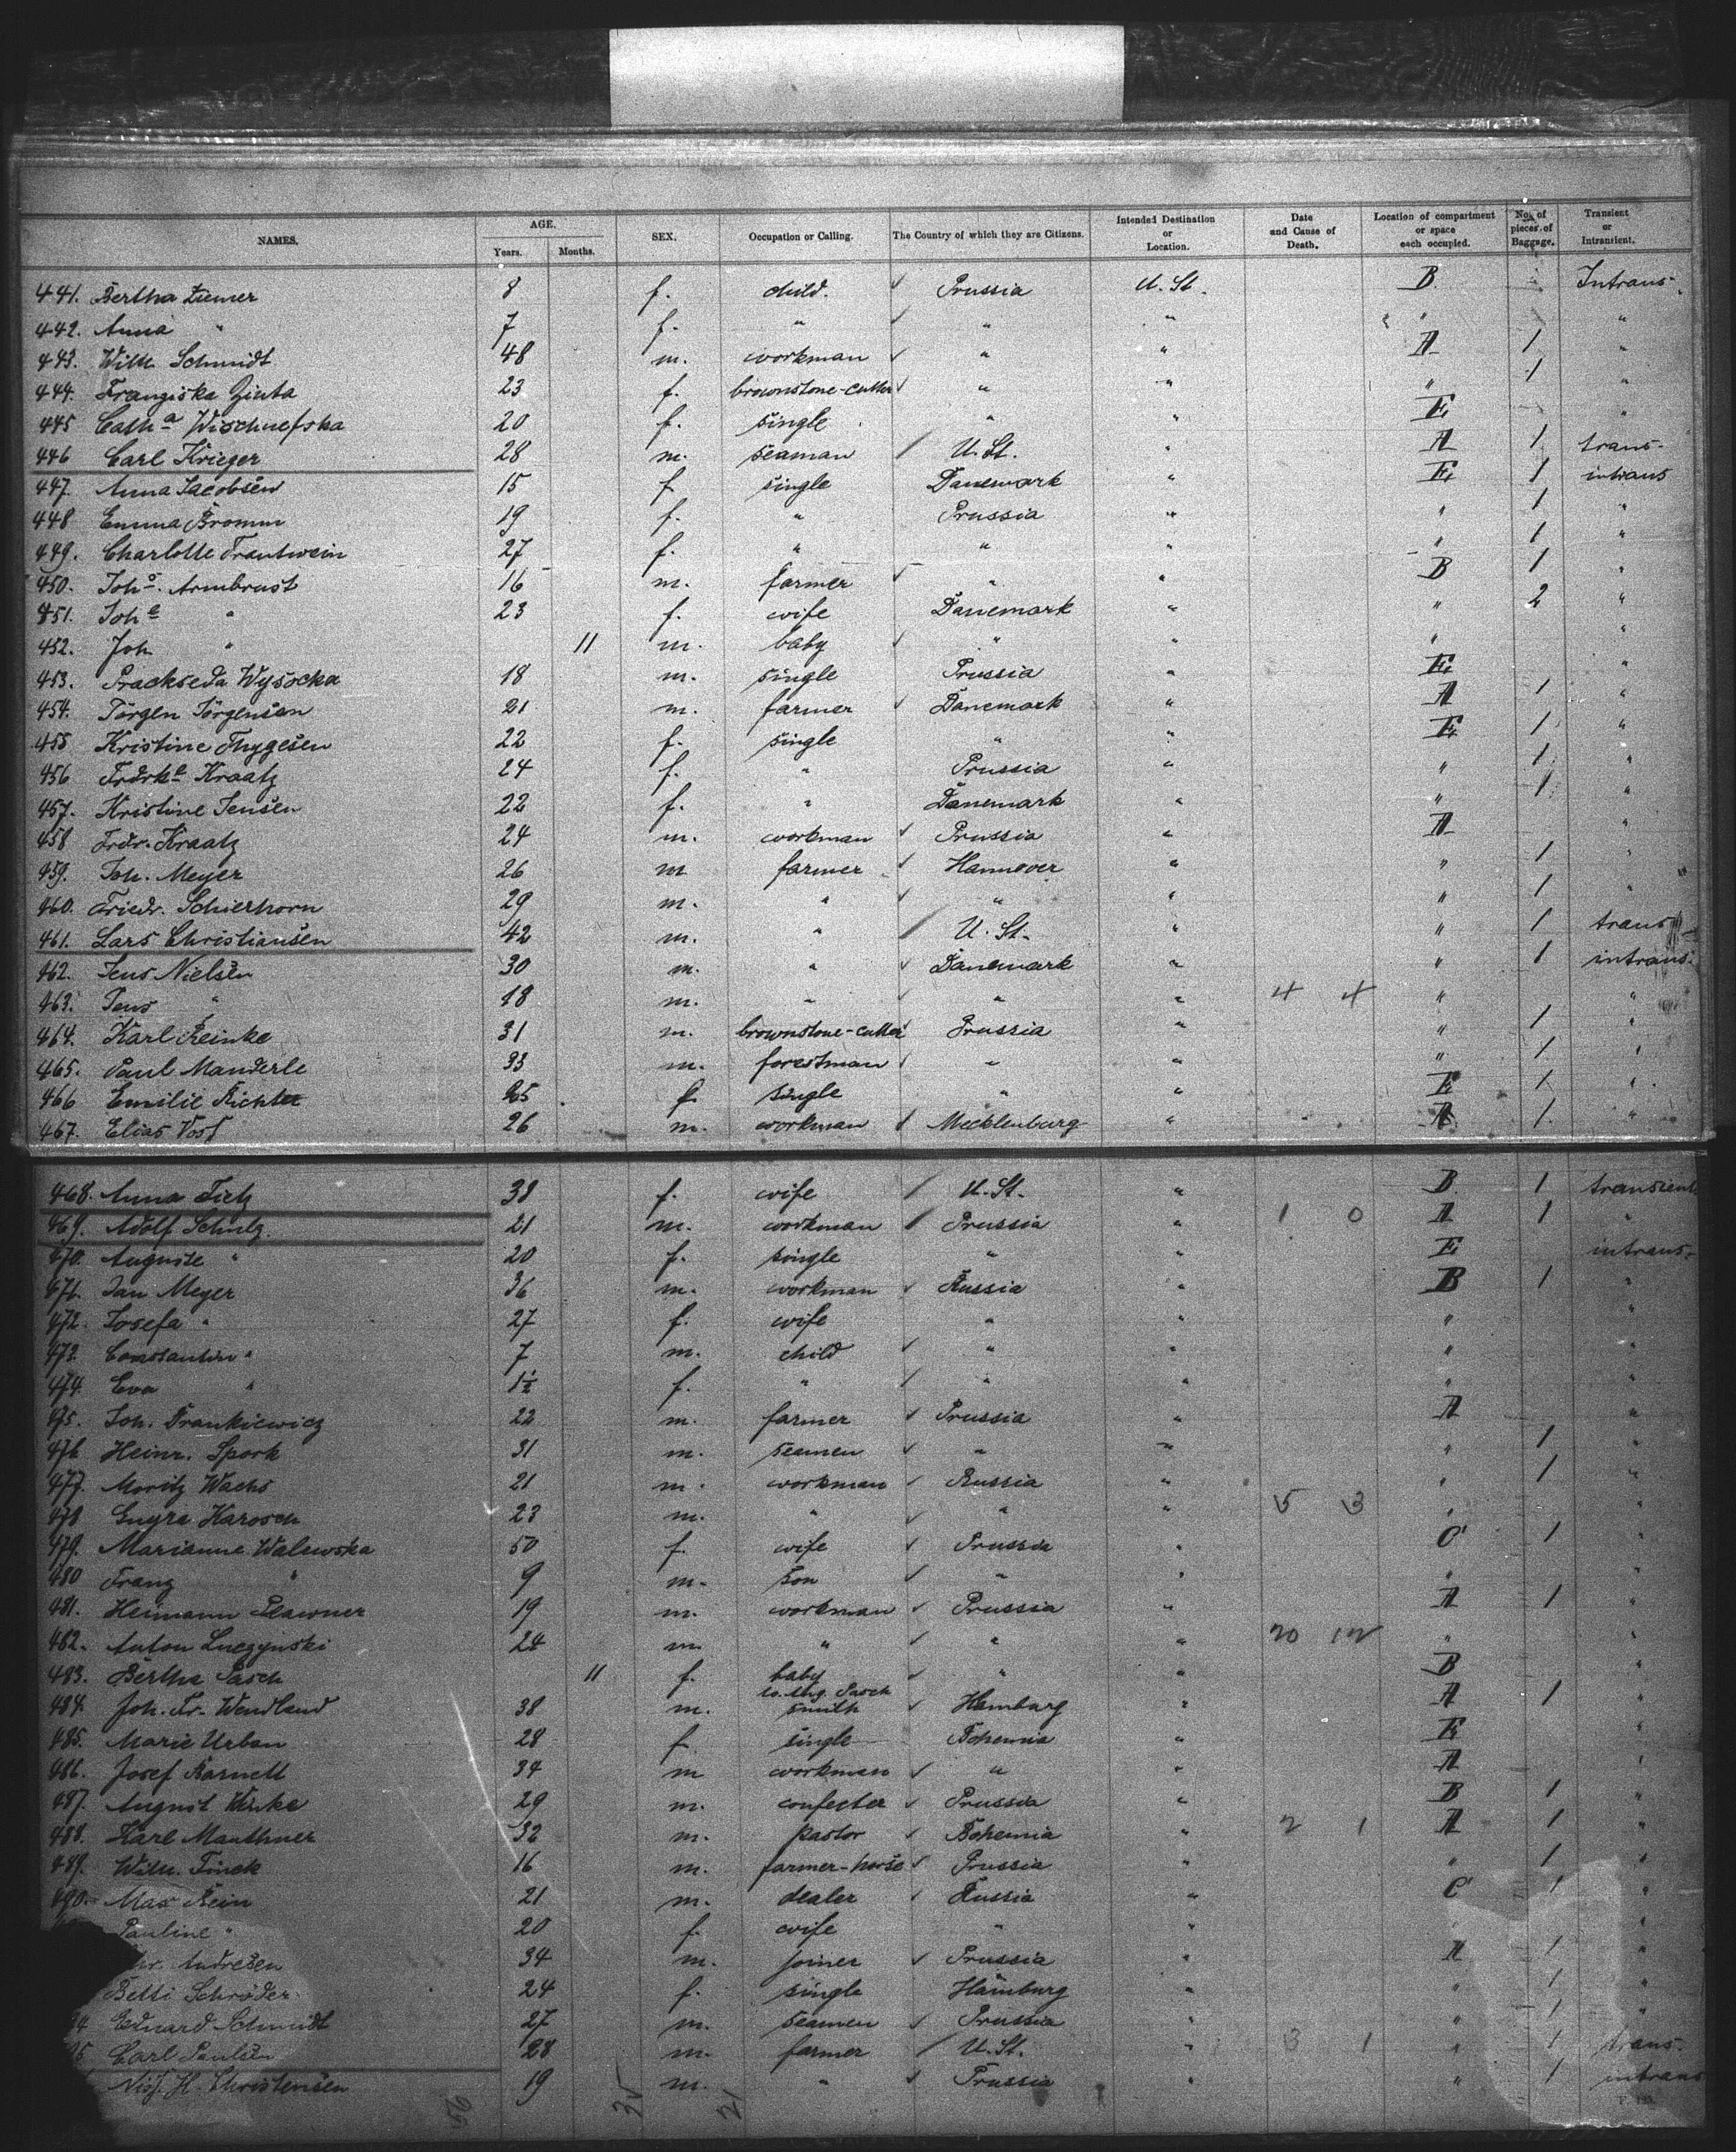 NAMES. AGE. SEX. Occupation or Calling. The Country of which they are Citizens. Intended Destination or Location. Date and Cause of Death. Location of compartment or space each occupied. No. of pieces of Baggage. Transient or Intransient.
Years. Months.
441. Bertha Ziemer 8 f. child. ✓ Prussia U. St. B. Intrans.
442. Anna " 7 f. " ✓ " " " "
443. Wilh. Schmidt 48 m. workman ✓ " " A 1 "
444. Franziska Zinta 23 f. brownstone-cutter ✓ " " " 1 "
445 Cath.a Wischnefska 20 f. single " " E "
446 Carl Krieger 28 m. seaman / U. St. " A 1 trans.
447. Anna Jacobsen 15 f. single Danemark " E 1 intrans
448 Emma Bromm 19 f. " Prussia " " 1 "
449. Charlotte Trautwein 27 f. " " " " 1 "
450. Joh.s Armbrust 16 m. farmer ✓ " " B 1 "
451. Joh.e " 23 f. wife Danemark " " 2 "
452. Joh. " 11 m. baby ✓ " " " "
453. Prackseda Wysocka 18 m. single Prussia " E "
454. Jörgen Jörgensen 21 m. farmer ✓ Danemark " A 1 "
455 Kristine Thygesen 22 f. single " " E 1 "
456 Frdrke Kraatz 24 f. " Prussia " " 1 "
457. Kristine Jensen 22 f. " Danemark " " 1 "
458 Frdr. Kraatz 24 m. workman ✓ Prussia " A "
459. Joh. Meyer 26 m farmer ✓ Hannover " " 1 "
460. Friedr. Schierhorn 29 m. " ✓ " " " 1 "
461. Lars Christiansen 42 m. " / U. St. " " 1 trans
462. Jens Nielsen 30 m. " ✓ Danemark " " 1 intrans.
463. Jens " 18 m. " ✓ " " 4 4 " "
464. Karl Reinke 31 m. brownstone-cutter ✓ Prussia " " 1 "
465. Paul Manderle 33 m. forestman ✓ " " " 1 "
466 Emilie Richter 25 f. single " " E 1 "
467. Elias Vost 26 m. workman ✓ Mecklenburg " A 1 "
468. Anna Tietz 38 f. wife / U. St. " B. 1 transient
469. Adolf Schulz. 21 m. workman ✓ Prussia " 1 0 A 1 "
470. Auguste " 20 f. single " " E intrans.
471. Jan Meyer 36 m. workman ✓ Russia " B 1 "
472. Josefa " 27 f. wife " " " "
473. Constantin " 7 m. child ✓ " " " "
474. Eva " 1½ f. " / " " " "
475. Joh. Frankiewicz 22 m. farmer ✓ Prussia " A "
476 Heinr. Spork 31 m. seamen ✓ " " " 1 "
477. Moritz Wachs 21 m. workman ✓ Russia " " 1 "
478 Karosch 23 m. " ✓ " " 5 3 " "
479. Marianne Walewska 50 f. wife ✓ Prussia " C 1 "
480 Franz " 9 m. son ✓ " " " "
481. Heimann Plawner 19 m. workman ✓ Prussia " A 1 "
482. Anton Luczynski 24 m. " ✓ " " 20 12 " "
483. Bertha Pasch 11 f. baby ✓ " " B "
to. Aug. Pasch
484. Joh. Fr. Wendland 38 m. smith ✓ Hamburg " A 1 "
485. Marie Urban 28 f. single Bohemia " E "
486. Josef Barnett 34 m workman ✓ " " A "
487. August Winke 29 m. confecter ✓ Prussia " B 1 "
488. Karl Mauthner 32 m. pastor ✓ Bohemia " 2 1 A 1 "
489. Wilh. Finck 16 m. farmer-horse ✓ Prussia " " 1 "
490. Max Rein 21 m. dealer ✓ Russia " C 1 "
Pauline " 20 f. wife " " " "
Andresen 34 m. joiner ✓ Prussia " A 1 "
Betti Schröder 24 f. single Hamburg " " 1 "
94 Eduard Schmidt 27 m. seamen ✓ Prussia " " 1 "
95 Carl Paulsen 28 m. farmer / U. St. " 3 1 " 1 trans.
H. Christensen 19 m. " ✓ Prussia " " 1 intrans